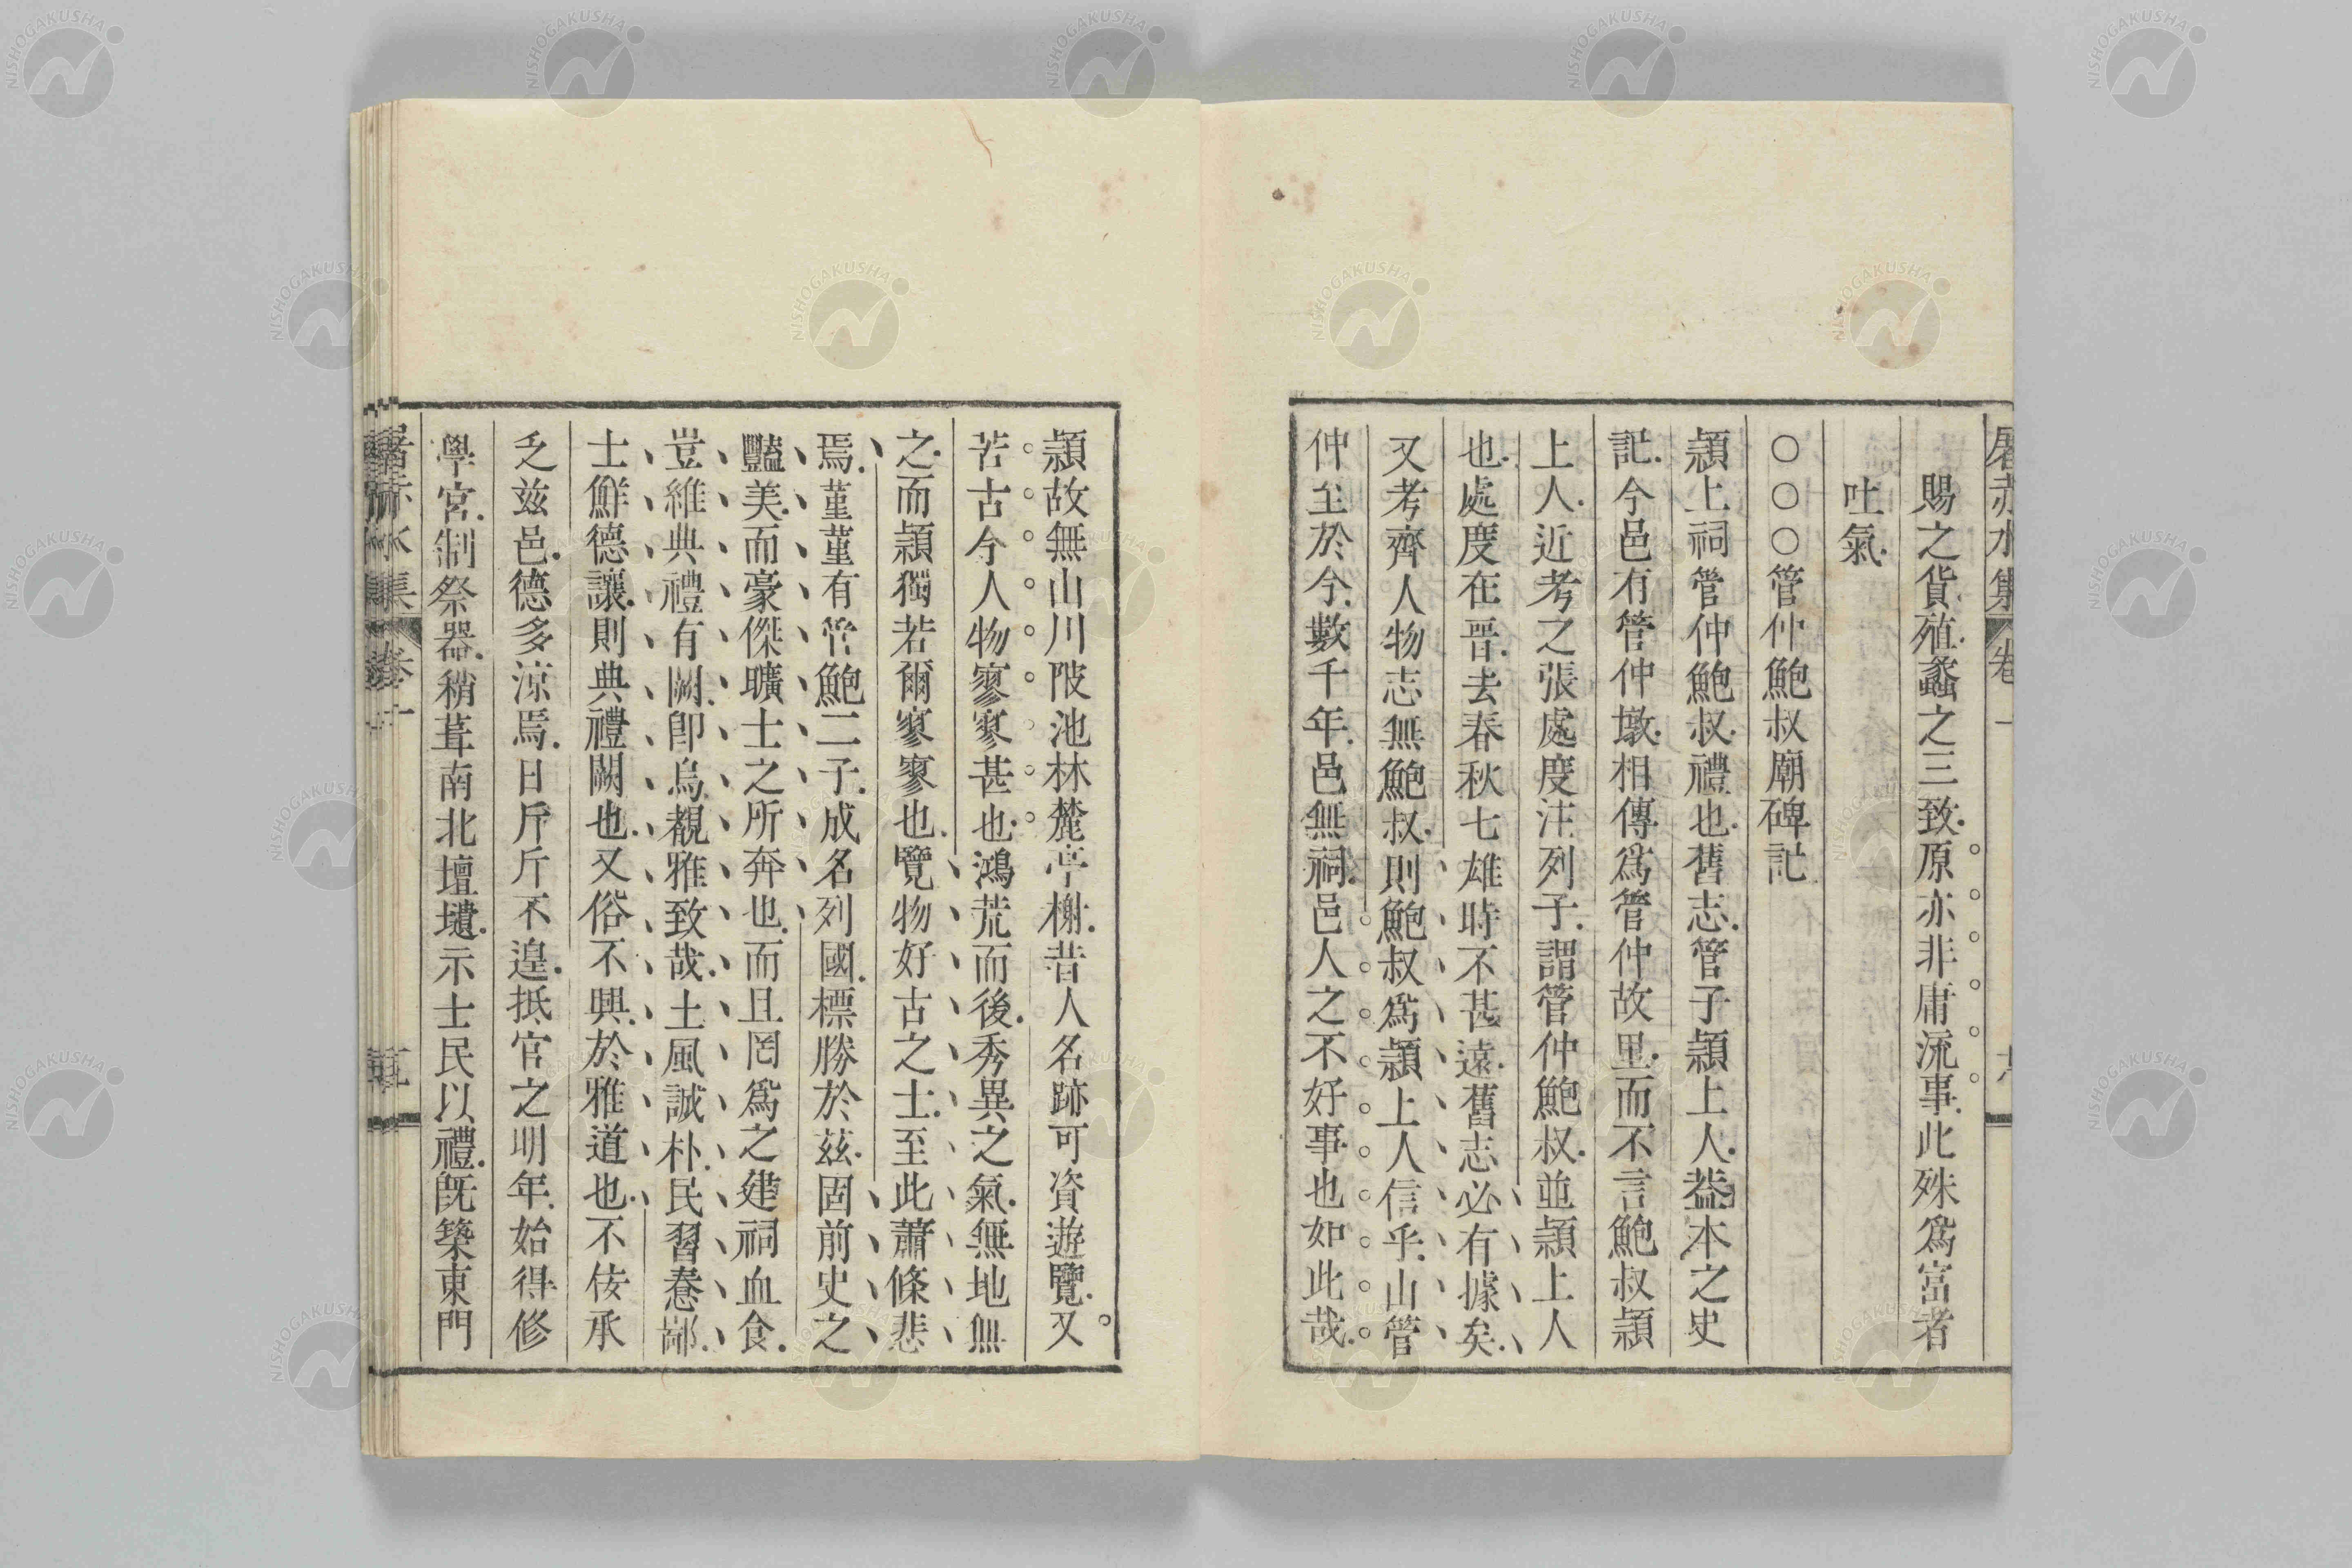 屠赤水集 卷一
賜之貨殖蠡之三致原亦非庸流事此殊爲富者
吐氣
○○○管仲鮑叔廟碑記
潁上祠管仲鮑叔禮也舊志管子潁上人葢本之史
記今邑有管仲墩相傳爲管仲故里而不言鮑叔潁
上人近考之張處度注列子謂管仲鮑叔並潁上人
也處度在晋去春秋七雄時不甚遠舊志必有據矣
又考齊人物志無鮑叔則鮑叔爲潁上人信乎山管
仲至於今數千年邑無祠邑人之不好事也如此哉
潁故無山川陂池林麓亭榭昔人名跡可資遊覽又
苦古今人物寥寥甚也鴻荒而後秀異之氣無地無
之而潁獨若爾寥寥也覽物好古之士至此蕭條悲
焉菫菫有管鮑二子成名列國標勝於茲固前史之
豔美而豪傑曠士之所奔也而且罔爲之建祠血食
豈維典禮有闕卽烏覩雅致哉土風誠朴民習惷鄙
士鮮德讓則典禮闕也又俗不興於雅道也不佞承
乏兹邑德多涼焉日斤斤不遑抵官之明年始得修
學宮制祭器稍葺南北壇壝示士民以禮旣築東門
屠赤水集 卷十
NISHOGAKUSHA